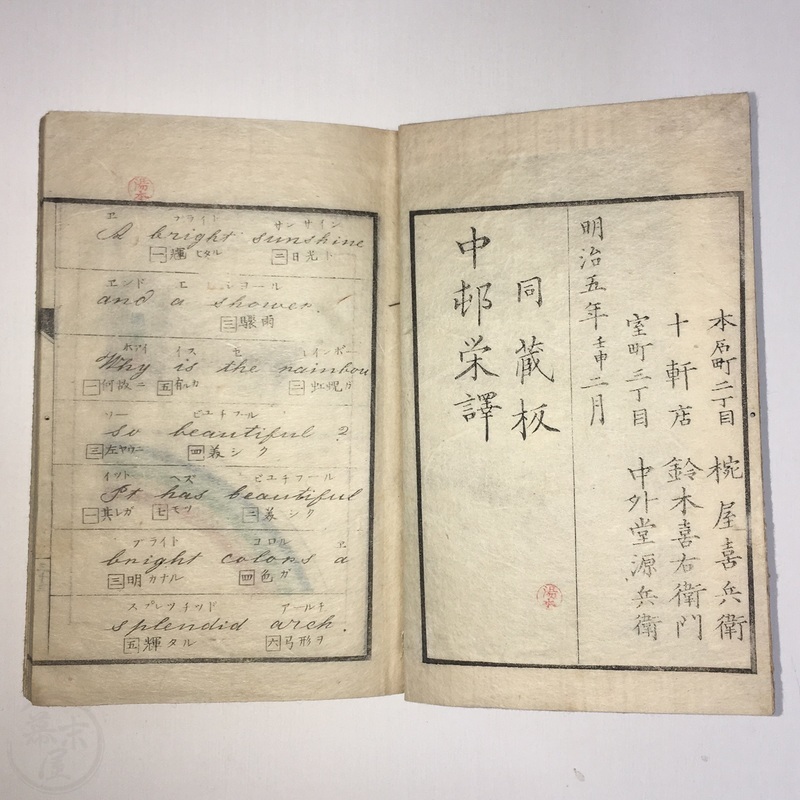 本石町二丁目 椀屋喜兵衛
十軒店 鈴木喜右衛門
室町三丁目 中外堂源兵衛
明治五年壬申二月
同蔵板
中邨栄譯
湯本
湯本
ヱ ブライト サンサイン
A bright sunshine
一 輝ヒタル 二 日光ト
エンド エ
and a shower.
三 驟雨
ホアイ イス ゼ レインボー
Why is the rainbow
一 何故ニ 五 有ルカ 二 虹蜺ガ
ソー ビユチフール
so beautiful?
三 四 美シク
イット ヘズ ビユチフール
It has beautiful
一 其レガ 七 モツ 二 美シク
ブライト コロル ヱ
bright colors a
三 明カナル 四 色ガ
スプレンヂッド アールチ
splendid arch.
五 輝タル 六 弓形ヲ
幕末屋